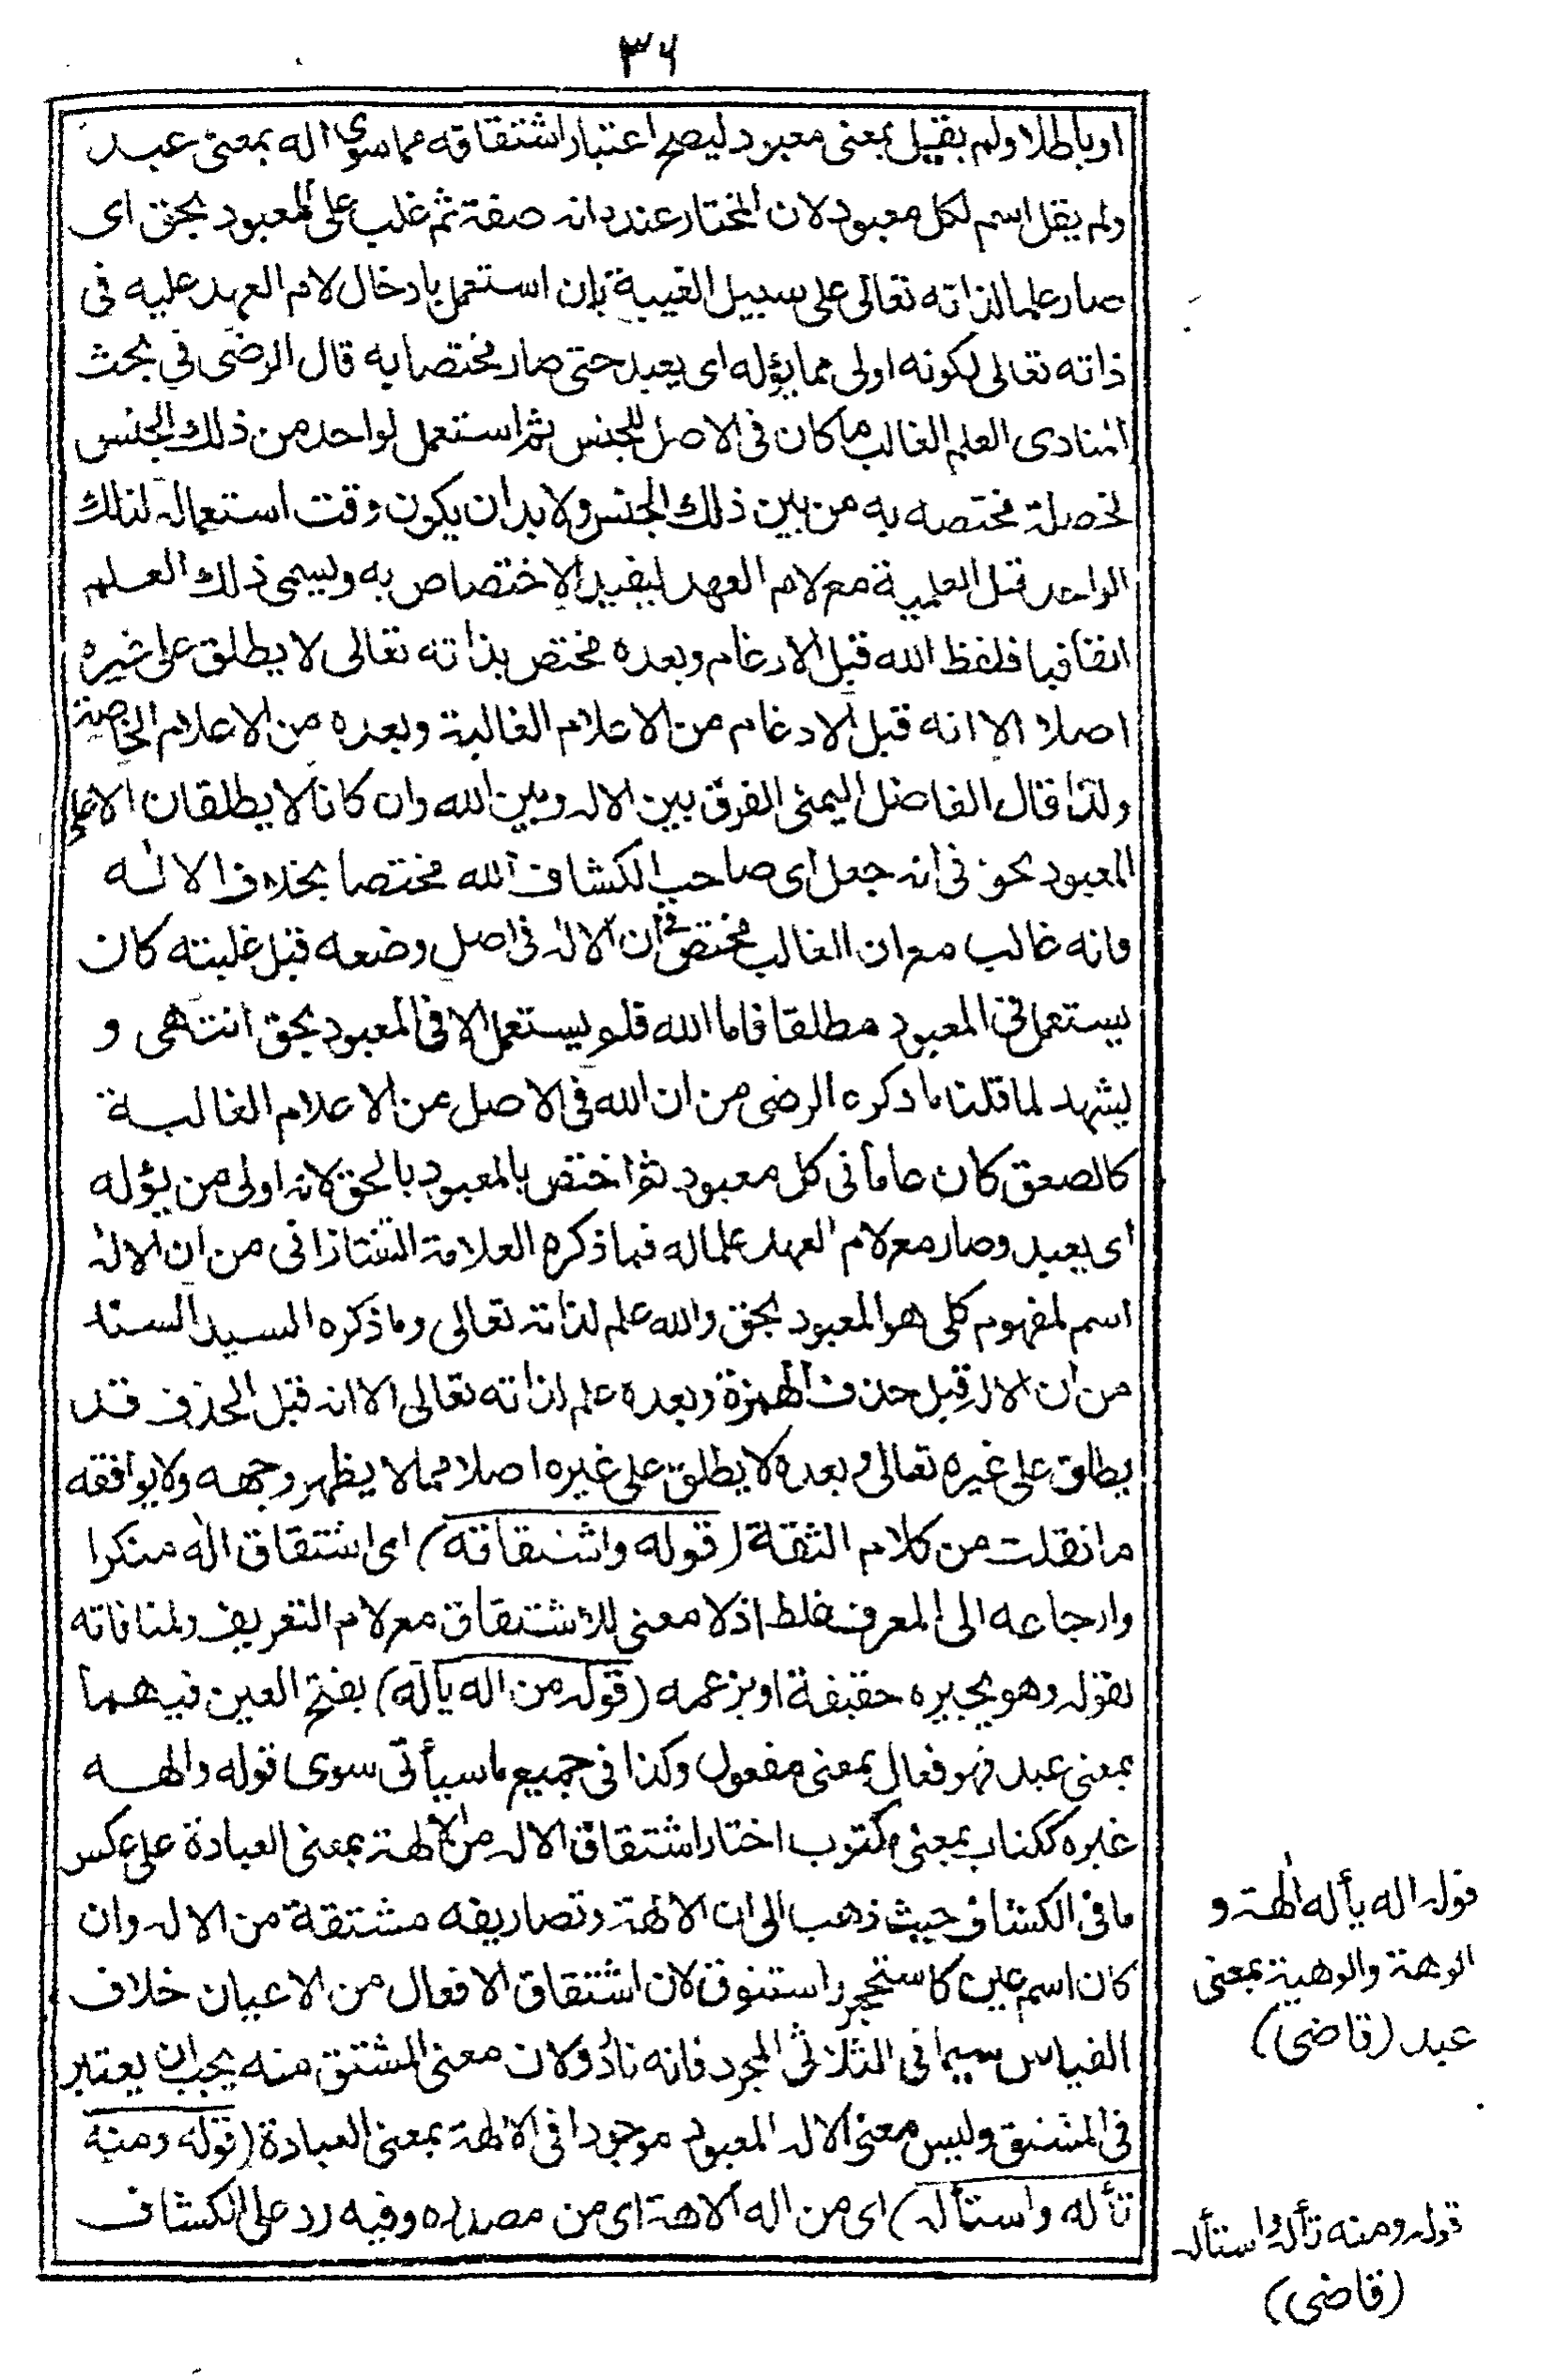 ٣٦
او باطلا ولم يقل بمعنى معبود ليصح اعتبار اشتقاقه مما سوى اله بمعنى عبد
ولم يقل اسم لكل معبود لان المختار عنده انه صفة ثم غلب على المعبود بحق اى
صار علما لذاته تعالى على سبيل الغيبة بان استعمل بادخال لام العهد عليه فى
ذاته تعالى لكونه اولى مما يؤله اى يعبد حتى صار مختصا به قال الرضى في بحث
المنادى العلم الغالب ما كان فى الاصل للجنس ثم استعمل لواحد من ذلك الجنس
لخصلة مختصه به من بين ذلك الجنس ولا بد ان يكون وقت استعماله لذلك
الواحد قبل العلمية مع لام العهد ليفيد الاختصاص به ويسمى ذلك العلم
اتفاقيا فلفظ الله قبل الادغام وبعده مختص بذاته تعالى لا يطلق على غيره
اصلا الا انه قبل الادغام من الاعلام الغالبة وبعده من الاعلام الخاصة
ولذا قال الفاضل اليمنى الفرق بين الاله وبين الله وان كانا لا يطلقان الا على
المعبود بحق فى انه جعل اى صاحب الكشاف الله مختصا بخلاف الاله
فانه غالب مع ان الغالب مختص فى ان الاله فى اصل وضعه قبل غلبته كان
يستعمل فى المعبود مطلقا فاما الله فلم يستعمل الا فى المعبود بحق انتهى و
يشهد لما قلنا ما ذكره الرضى من ان الله فى الاصل من الاعلام الغالبة
كالصعق كان عاما فى كل معبود ثم اختص بالمعبود بالحق لانه اولى من يؤله
اى يعبد وصار مع لام العهد علما له فما ذكره العلامة التفتازانى من ان الاله
اسم لمفهوم كلى هو المعبود بحق والله علم لذاته تعالى وما ذكره السيد السند
من ان الاله قبل حذف الهمزة وبعده علم لذاته تعالى الا انه قبل الحذف قد
يطلق على غيره تعالى وبعده لا يطلق على غيره اصلا مما لا يظهر وجهه ولا يوافقه
ما نقلت من كلام الثقة (قوله واشتقاقه) اى اشتقاق اله منكرا
وارجاعه الى المعرف غلط اذ لا معنى للاشتقاق مع لام التعريف ولمنافاته
لقوله وهو يجيره حقيقة او بزعمه (قوله من اله يأله) بفتح العين فيهما
بمعنى عبد فهو فعال بمعنى مفعول وكذا فى جميع ما سيأتى سوى قوله والهه
غيره ككتاب بمعنى مكتوب اختار اشتقاق الاله من الالهة بمعنى العبادة على عكس
ما فى الكشاف حيث ذهب الى ان الالهة وتصاريفه مشتقة من الاله وان
كان اسم عين كاستحجر واستنوق لان اشتقاق الافعال من الاعيان خلاف
القياس سيما فى الثلاثى المجرد فانه نادر ولان معنى المشتق منه يجب ان يعتبر
فى المشتق وليس معنى الاله المعبود موجودا فى الالهة بمعنى العبادة (قوله ومنه
تأله واستأله) اى من اله الاهة اى من مصدره وفيه رد على الكشاف
قوله اله يأله الهة و
الوهة والوهية بمعنى
عبد (قاضى)
قوله ومنه تأله واستأله
(قاضى)